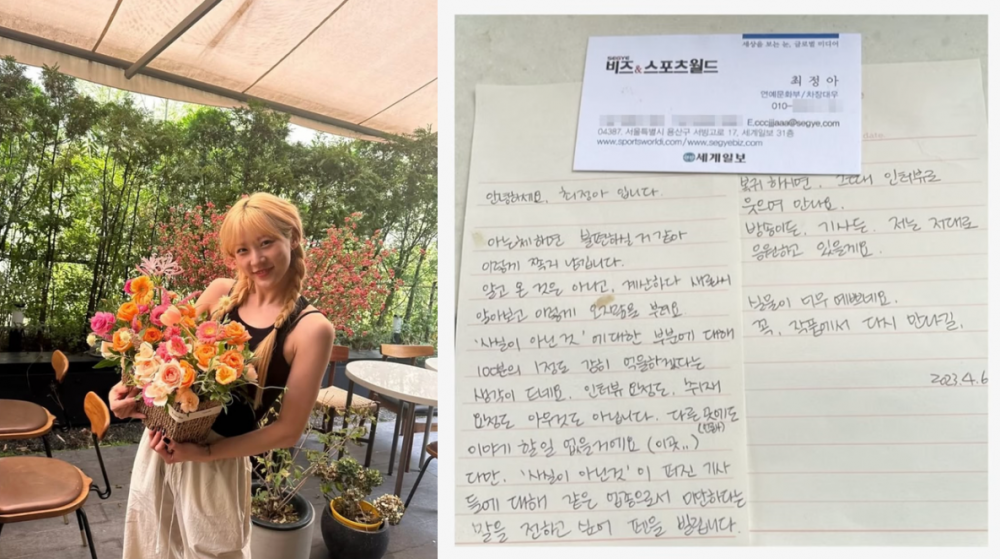 세상을 보는 눈, 글로벌 미디어
SEGYE
비즈&스포츠월드
최 정 아
연예문화부/차장대우
010-
E.cccjjaaa@segye.com
04387. 서울특별시 용산구 서빙고로 17, 세계일보 31층
www.sportsworldi.com/www.segyebiz.com
세계일보
date
안녕하세요, 최정아 입니다.
아는체하면 불편하실 거 같아
이렇게 쪽지 남깁니다.
알고 온 것은 아니고, 계산하다
알아보고 이렇게 오지랖을 부려요
'사실이 아닌 것' 에 대한 부분에 대해
100만의 1정도 감히 억울하겠다는
생각이 드네요. 인터뷰 요청도, 취재
요청도 아무것도 아닙니다. 다른 곳에도
이야기 할 일 없을거에요 (이곳..)
다만, '사실이 아닌것'이 퍼진 기사
들에 대해 같은 업종으로서 미안하다는
말을 전하고 싶어 펜을 빌립니다.
복귀 하시면, 그때 인터뷰로
웃으며 만나요.
방송이든, 기사든. 저는 저대로
응원하고 있을게요.
실물이 너무 예쁘네요.
꼭, 작품에서 다시 만나길.
2023.4.6